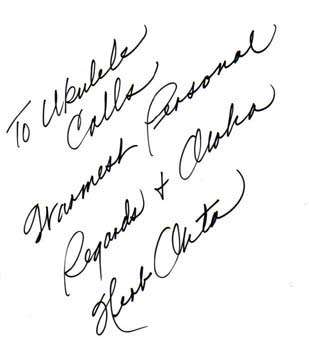 To Ukulele
Calls
Warmest Personal
Regards & Aloha
Herb Ohta